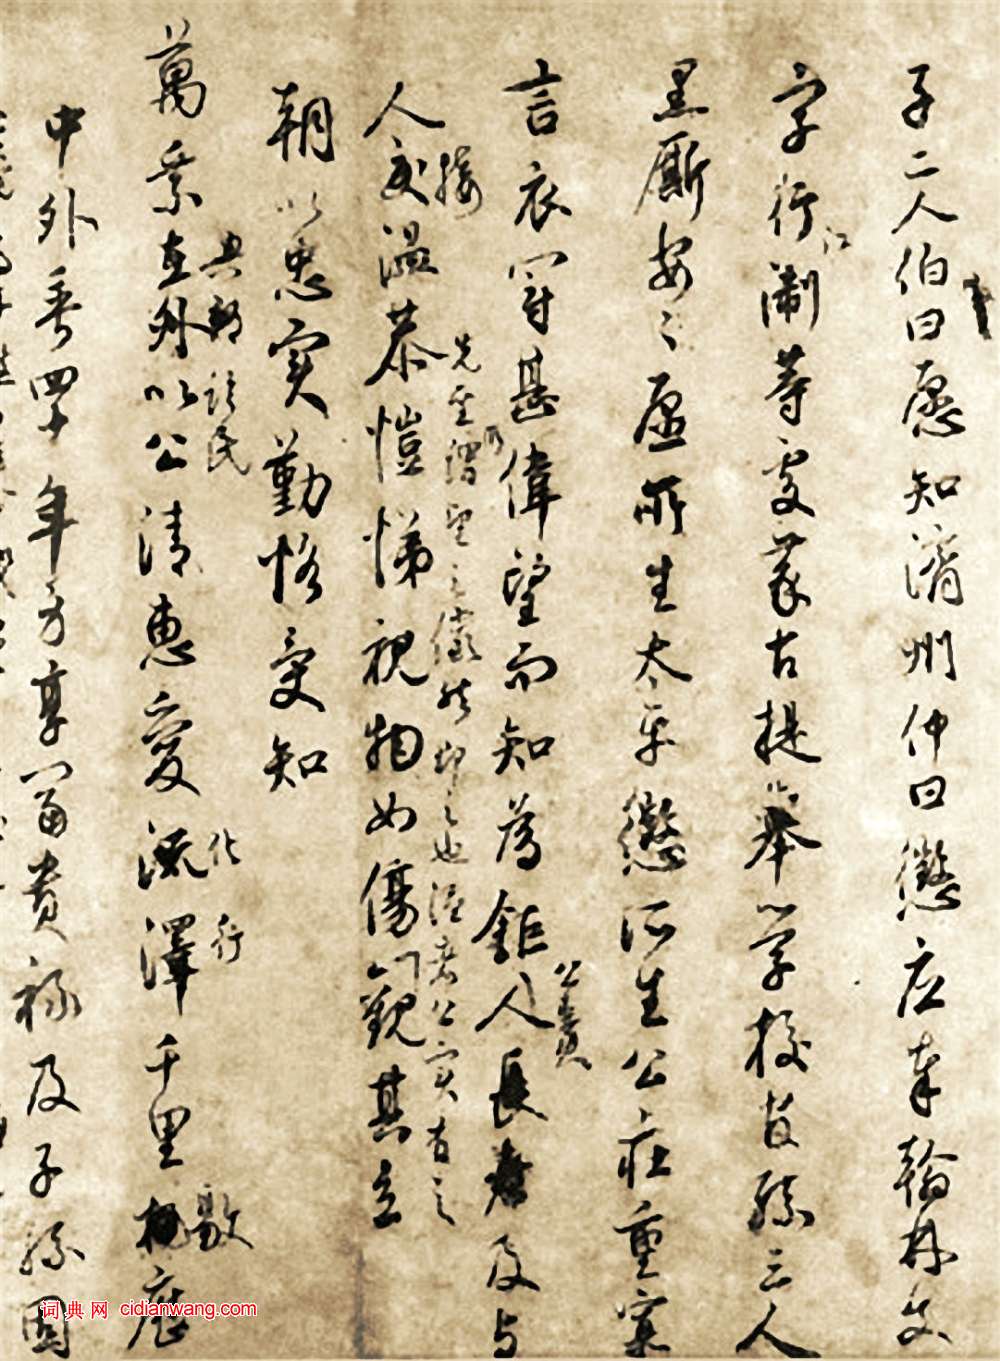 子二人伯曰愿知濟州仲曰懲应奉翰林文
字行江淛等處蒙古提舉學校官孫三人
黑厮安〻愿所生太平懲所生公莊重寡
言衣冠甚偉望而知為鉅人長者及与
公貴
人交溫恭愷悌視物如傷觀其立
接
先聖謂望之儼然即之也溫者公實有之
朝以忠實勤恪受知
萬乘在外以公清惠愛流澤千里歷
典郡
民
化行
中外垂四十年方享富貴祿及子孫固
词典网 cidianwang.com